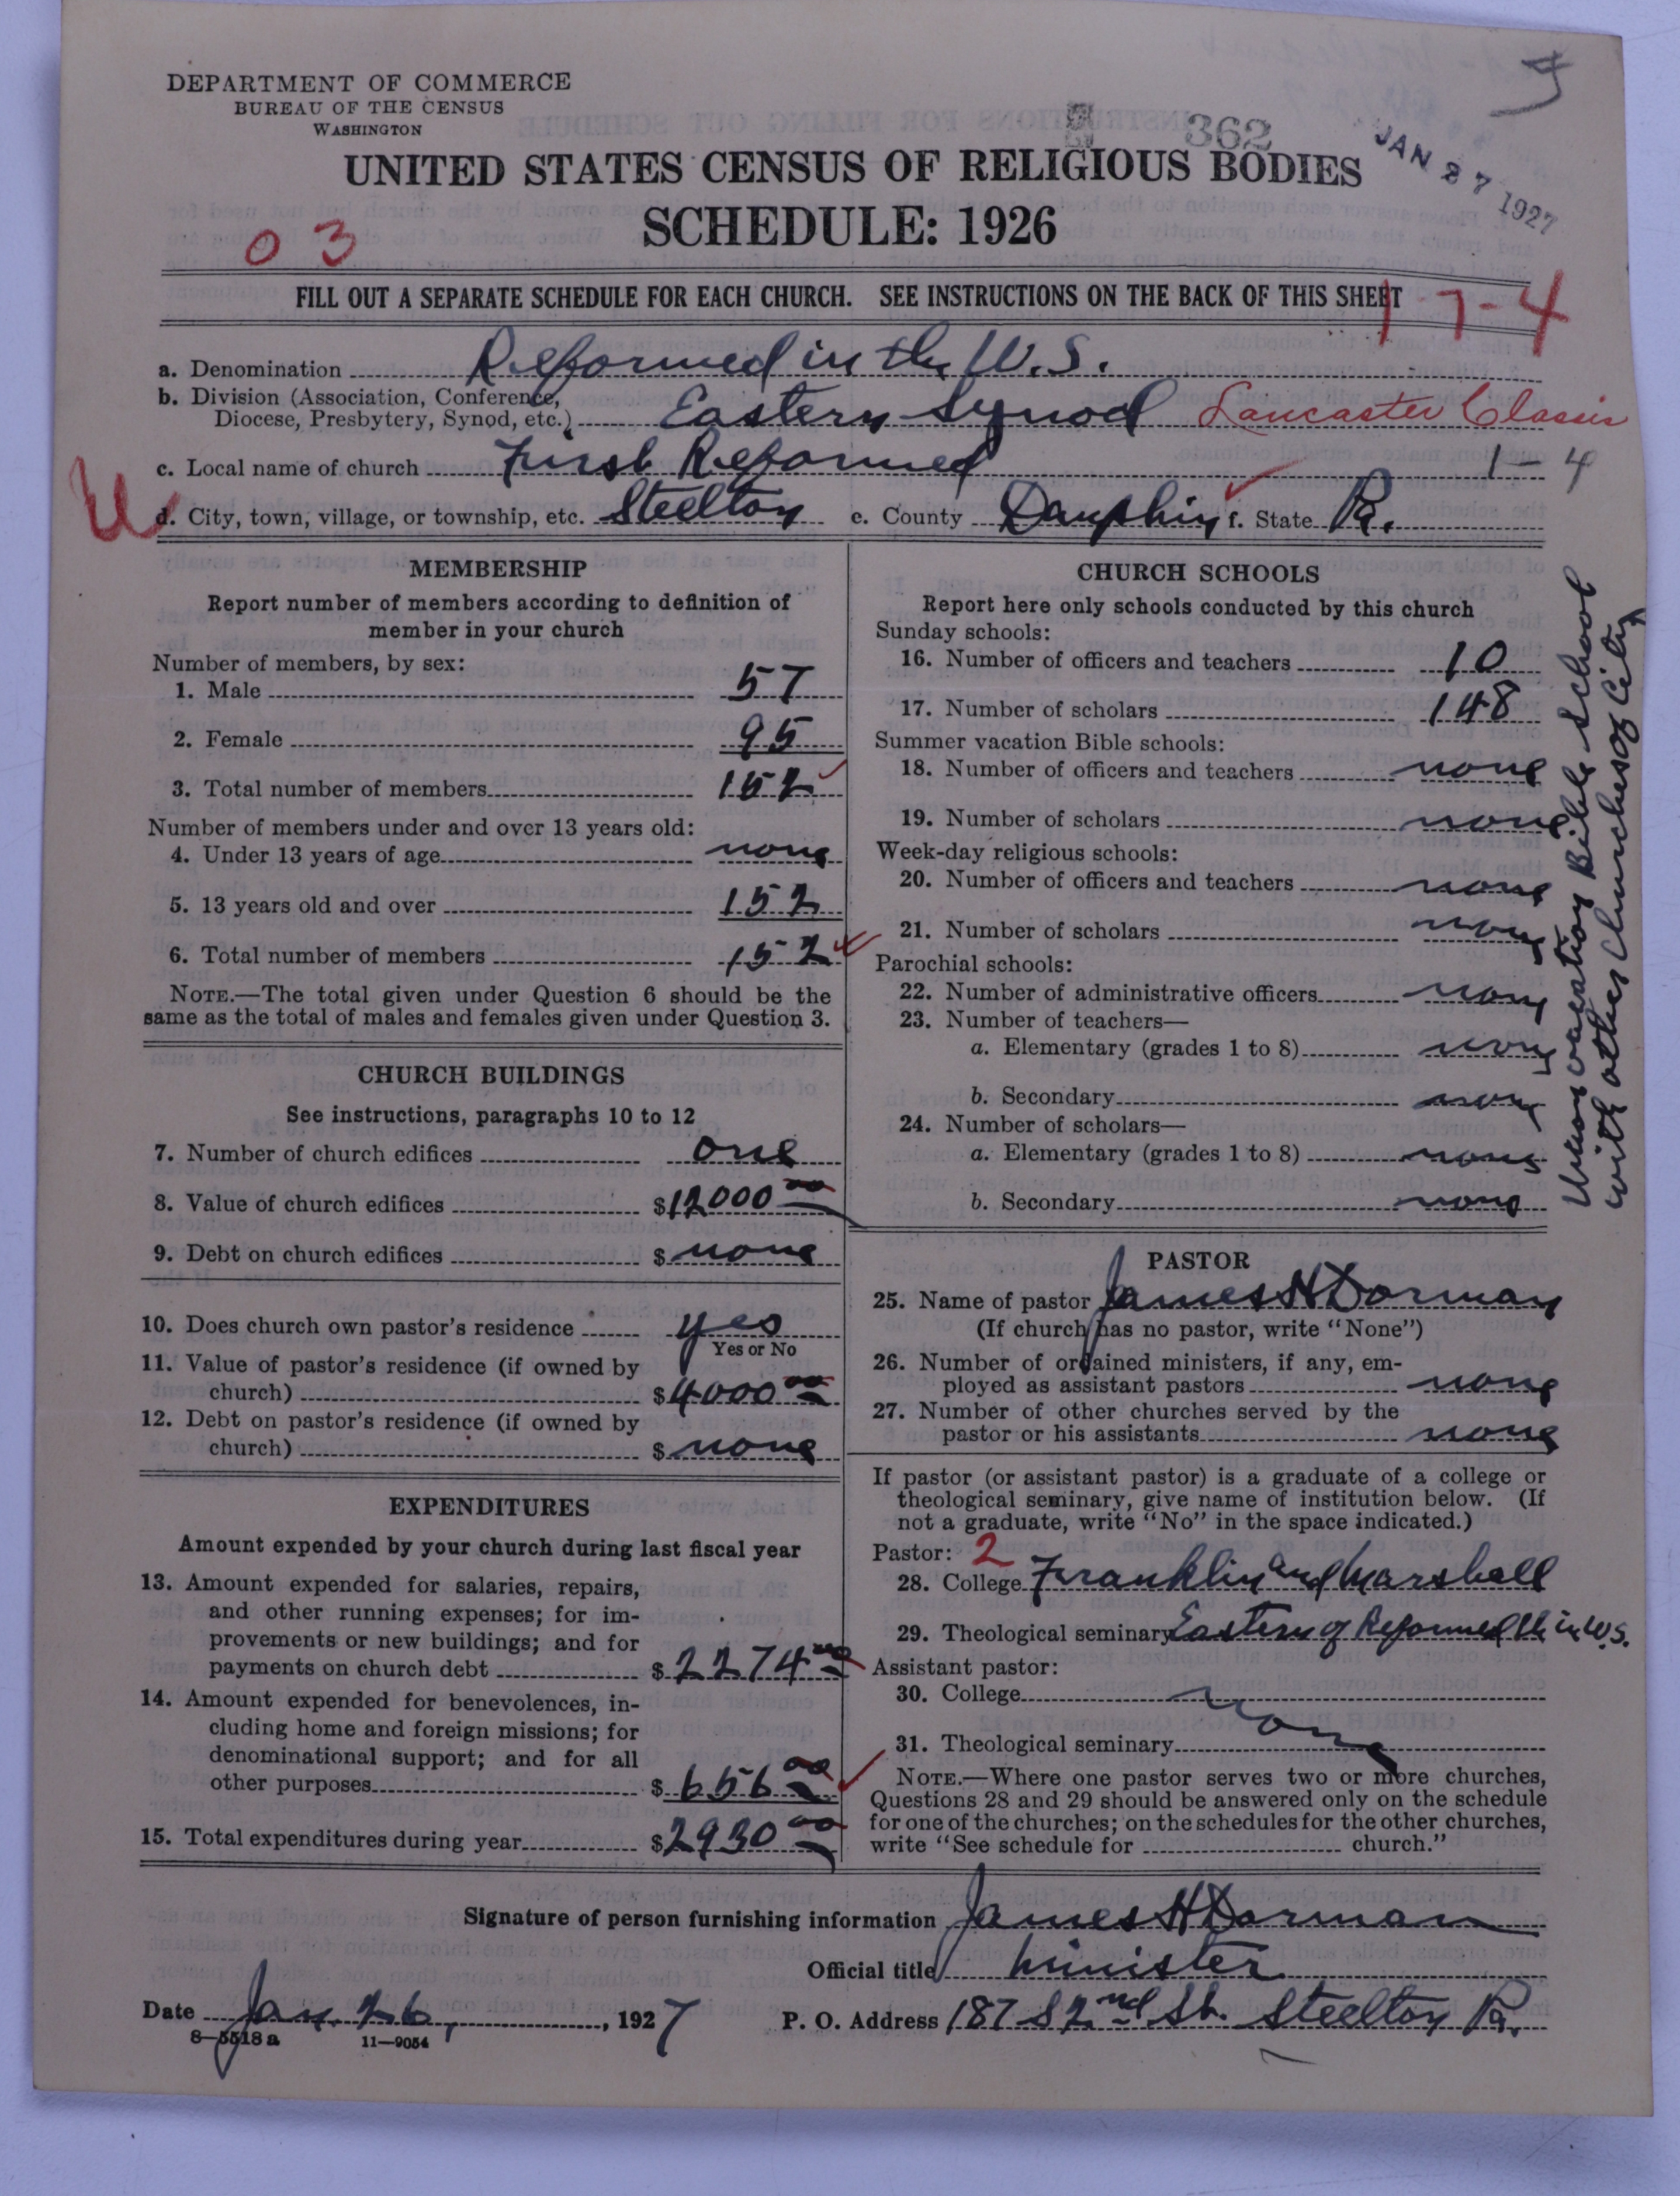 DEPARTMENT OF COMMERCE
BUREAU OF THE CENSUS
WASHINGTON
362
JAN 27 1927
UNITED STATES CENSUS OF RELIGIOUS BODIES
SCHEDULE: 1926
03
FILL OUT A SEPARATE SCHEDULE FOR EACH CHURCH. SEE INSTRUCTIONS ON THE BACK OF THIS SHEET
17-4
a. Denomination Reformed in the U.S.
b. Division (Association, Conference,
Diocese, Presbytery, Synod, etc.) Eastern Synod Lancaster Classis
c. Local name of church First Reformed 1-4
d. City, town, village, or township, etc. Steelton e. County Dauphin f. State Pa.
MEMBERSHIP
Report number of members according to definition of
member in your church
Number of members, by sex:
1. Male 57
2. Female 95
3. Total number of members 152
Number of members under and over 13 years old:
4. Under 13 years of age none
5. 13 years old and over 152
6. Total number of members 152
NOTE.—The total given under Question 6 should be the
same as the total of males and females given under Question 3.
CHURCH BUILDINGS
See instructions, paragraphs 10 to 12
7. Number of church edifices one
8. Value of church edifices $12000 00
9. Debt on church edifices $ none
10. Does church own pastor's residence yes
Yes or No
11. Value of pastor's residence (if owned by
church) $4000 00
12. Debt on pastor's residence (if owned by
church) $ none
EXPENDITURES
Amount expended by your church during last fiscal year
13. Amount expended for salaries, repairs,
and other running expenses; for im-
provements or new buildings; and for
payments on church debt $2274 00
14. Amount expended for benevolences, in-
cluding home and foreign missions; for
denominational support; and for all
other purposes $656 00
15. Total expenditures during year $2930 00
CHURCH SCHOOLS
Report here only schools conducted by this church
Sunday schools:
16. Number of officers and teachers 10
17. Number of scholars 148
Summer vacation Bible schools:
18. Number of officers and teachers none
19. Number of scholars none
Week-day religious schools:
20. Number of officers and teachers none
21. Number of scholars none
Parochial schools:
22. Number of administrative officers none
23. Number of teachers—
a. Elementary (grades 1 to 8) none
b. Secondary none
24. Number of scholars—
a. Elementary (grades 1 to 8) none
b. Secondary none
Union vacation Bible School
with other churches of City
PASTOR
25. Name of pastor James H Dorman
(If church has no pastor, write "None")
26. Number of ordained ministers, if any, em-
ployed as assistant pastors none
27. Number of other churches served by the
pastor or his assistants none
If pastor (or assistant pastor) is a graduate of a college or
theological seminary, give name of institution below. (If
not a graduate, write "No" in the space indicated.)
Pastor: 2
28. College Franklin and Marshall
29. Theological seminary Eastern of Reformed Ch in U.S.
Assistant pastor:
30. College none
31. Theological seminary
NOTE.—Where one pastor serves two or more churches,
Questions 28 and 29 should be answered only on the schedule
for one of the churches; on the schedules for the other churches,
write "See schedule for church."
Signature of person furnishing information James H Dorman
Official title minister
Date Jan. 26, 1927 P. O. Address 187 S 2nd St. Steelton Pa.
8—5518 a 11—9054